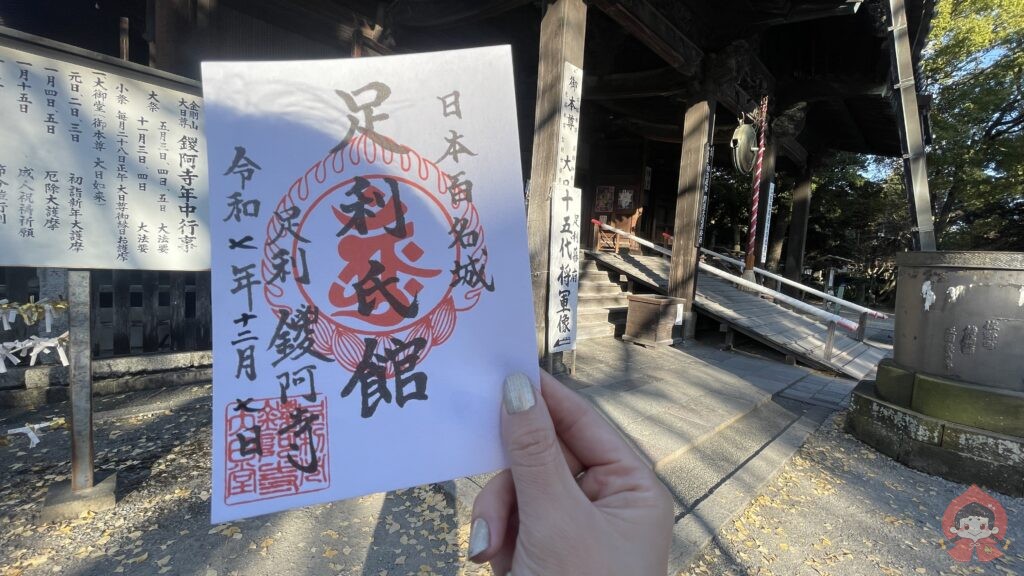 日本百名城
足利氏館
足利 鑁阿寺
令和七年十二月七日
金剛山
大日尊 鑁阿寺年中行亊
大祭 五月三日、四日、五日 大法要
十一月三日、四日 大法要
小祭 毎月二十八日正午大日尊御縁日お護摩
「大御堂」御本尊 大日如来
元日 二日 三日 初詣新年大護摩
一月四日 五日 厄除大護摩
一月十五日 成人祝祷祈願
御本尊 大日
十五代将軍像